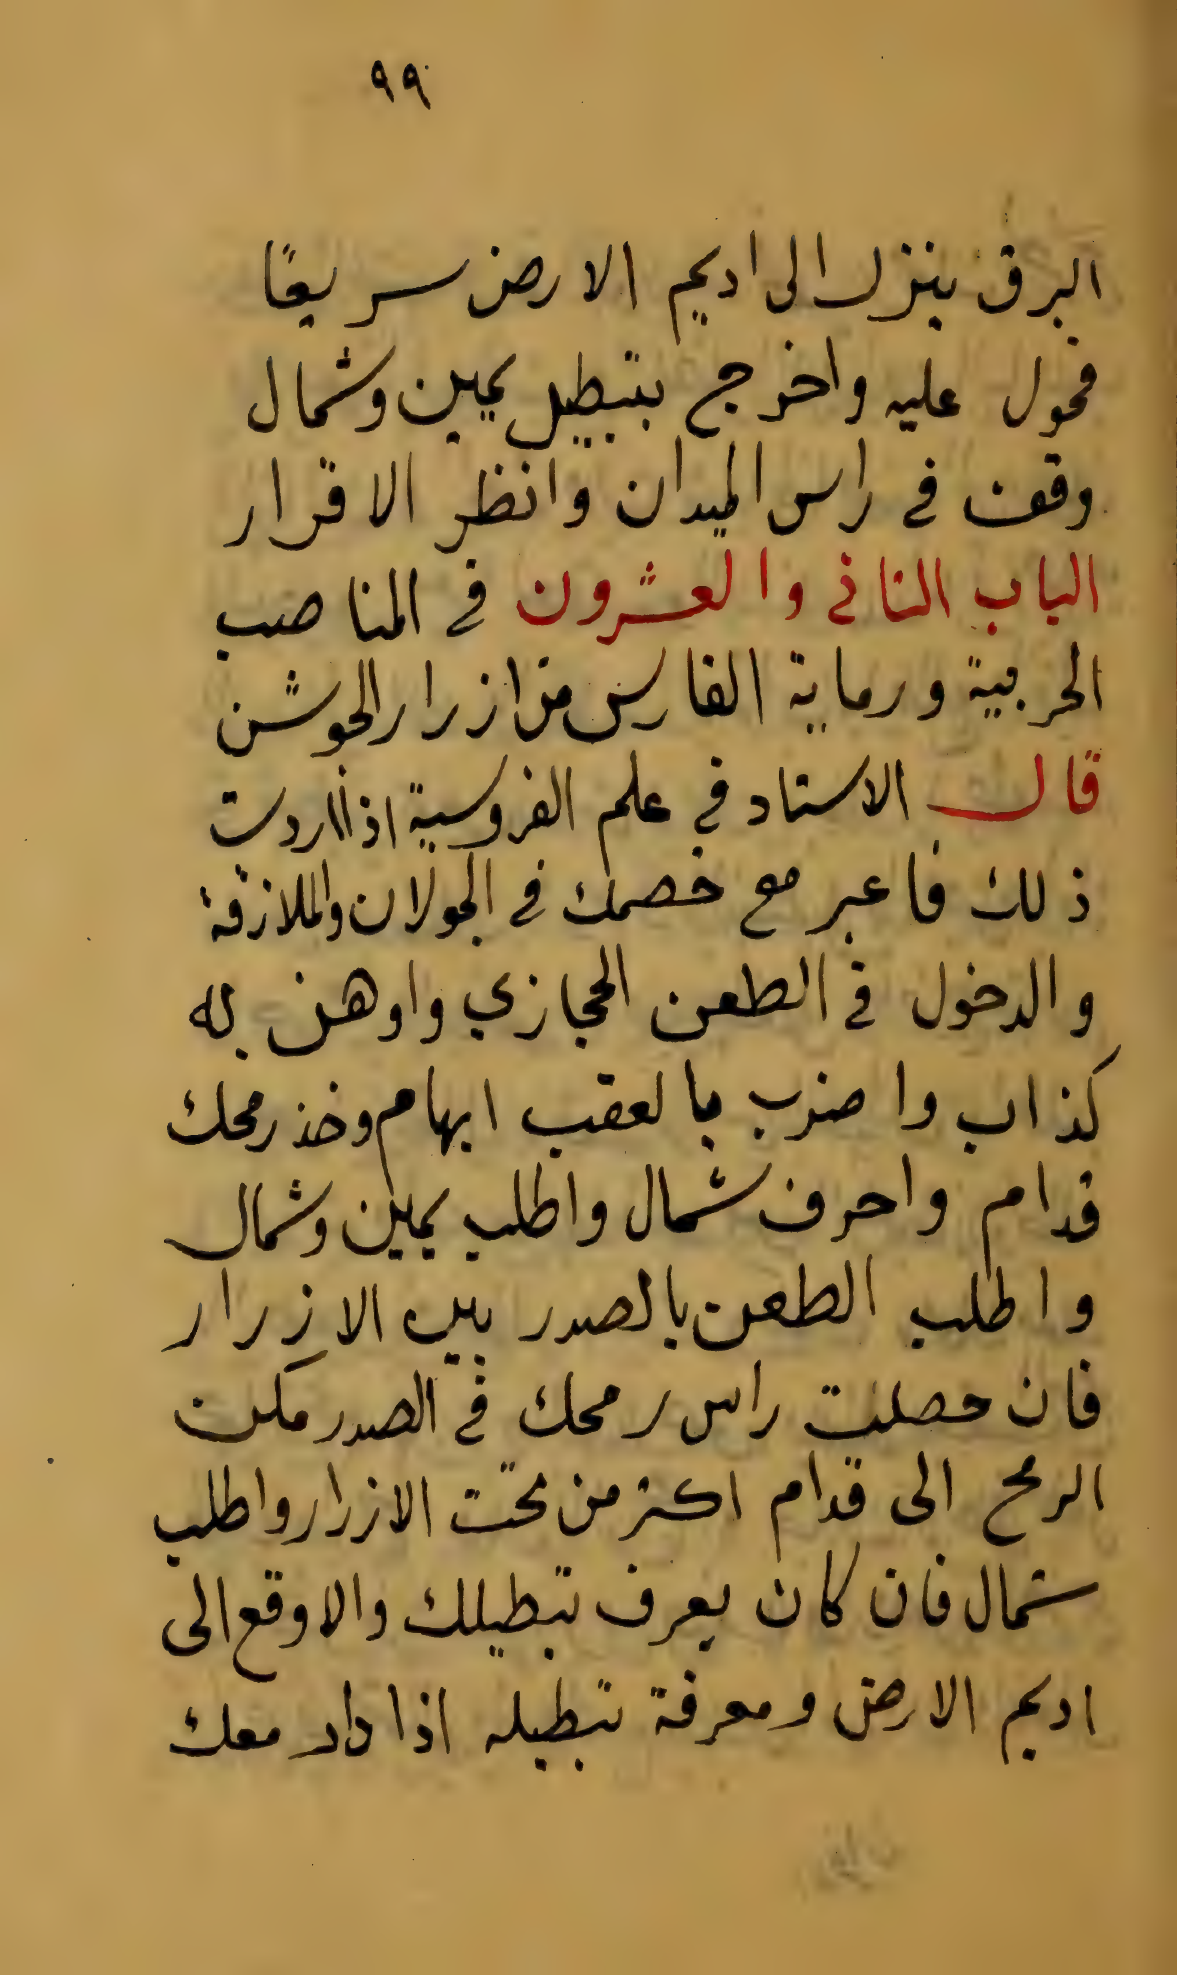 ٩٩
البرق ينزل الى اديم الارض سريعًا
فحول عليه واخرج بتبطيل يمين وشمال
وقف في راس الميدان وانظر الاقرار
الباب الثاني والعشرون في المناصب
الحربية ورماية الفارس من ازرار الجوشن
قال الاستاد في علم الفروسية اذا اردت
ذلك فاعبر مع خصمك في الجولان والملازقة
والدخول في الطعن الحجازي واوهن له
كذاب واضرب بالعقب ابهام وخذ رمحك
قدام واحرف شمال واطلب يمين وشمال
واطلب الطعن بالصدر بين الازرار
فان حصلت راس رمحك في الصدر مكن
الرمح الى قدام اكثر من تحت الازرار واطلب
شمال فان كان يعرف تبطيلك والا وقع الى
اديم الارض ومعرفة تبطيله اذا دار معك